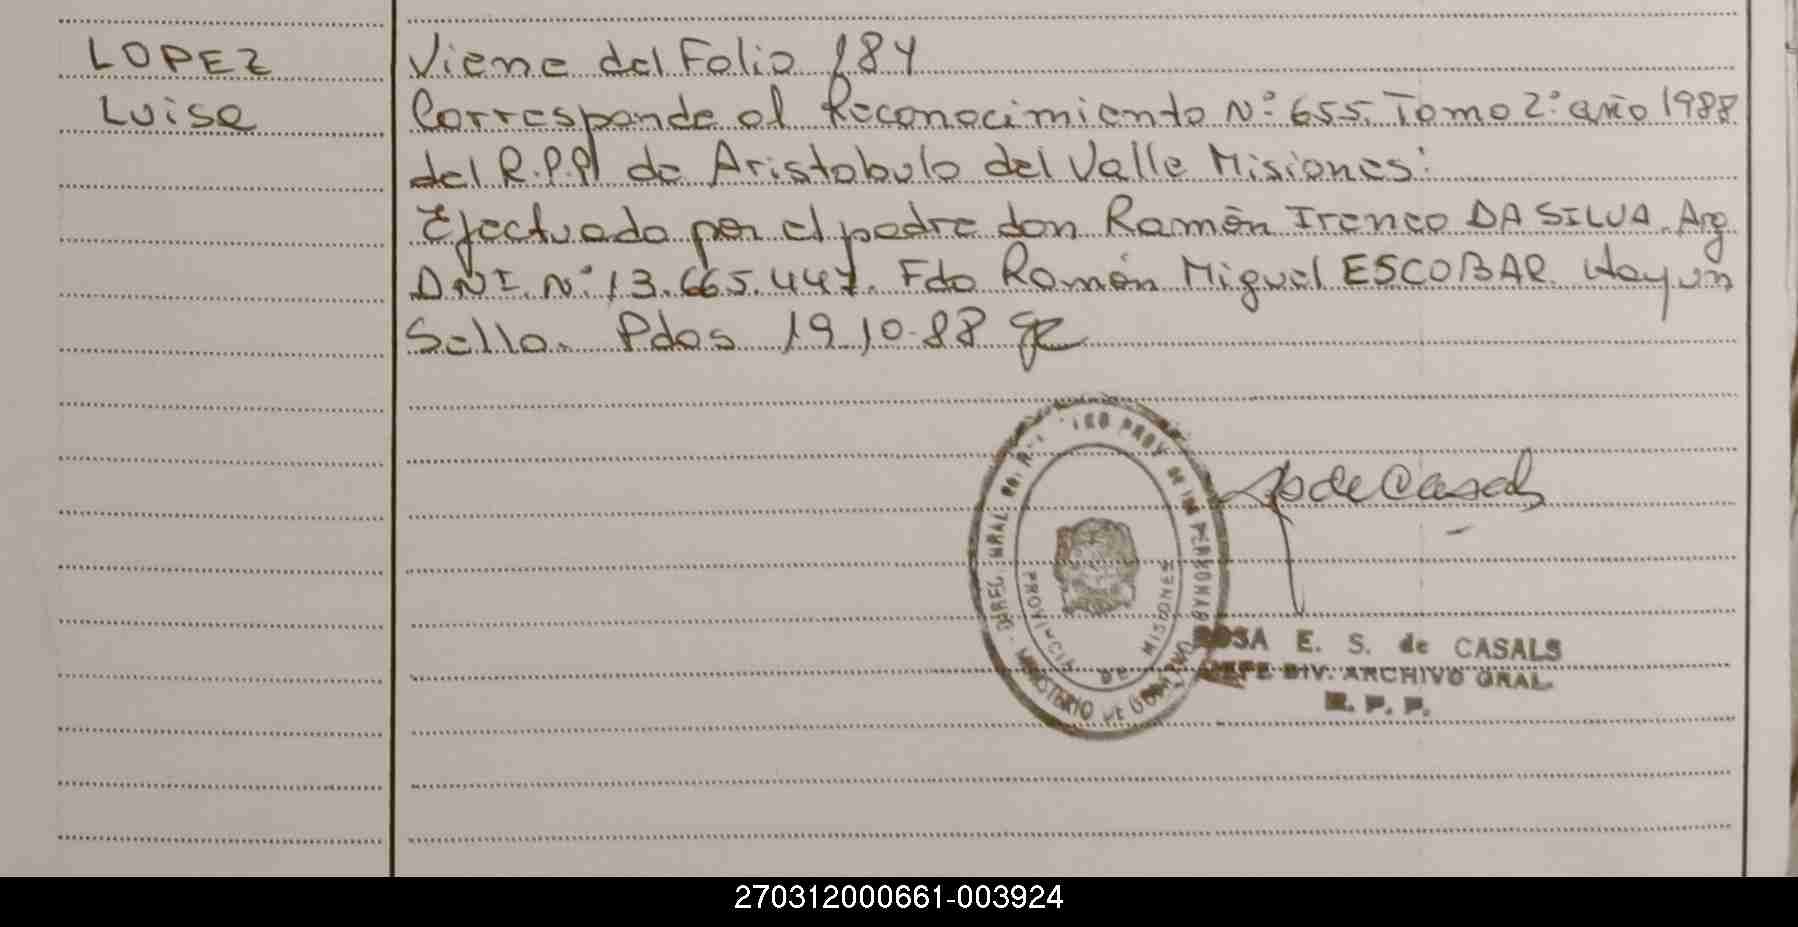 LOPEZ
Luisa
Viene del Folio 184
Corresponde al Reconocimiento N° 655. Tomo 2° año 1988
del R.P.P. de Aristobulo del Valle Misiones:
Efectuado por el padre don Ramón Ireneo DA SILVA. Arg.
DNI. N° 13.665.447. Fdo Ramón Miguel ESCOBAR. Hay un
Sello. Pdas 19.10.88
PROV. DE LAS PERSONAS
MINISTERIO DE GOBIERNO
PROVINCIA DE MISIONES
de Casals
ROSA E. S. de CASALS
JEFE DIV. ARCHIVO GRAL.
R. P. P.
270312000661-003924